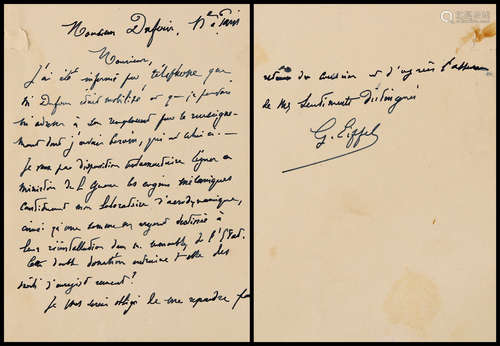 Monsieur Dufour, Nre à Paris
Monsieur,
J'ai été informé par téléphone que
M. Dufour était mobilisé et que je pouvais
m'adresser à son remplaçant pour le renseigne-
ment dont j'avais besoin, qui est celui-ci :
Je veux par disposition testamentaire léguer au
ministère de la Guerre les engins mécaniques
constituant mon laboratoire d'aérodynamique,
ainsi qu'une somme en argent destinée à
leur réinstallation dans un immeuble de l'État.
Cette double donation entraine t-elle des
droits d'enregistrement ?
Je vous serais obligé de me répondre par
retour du courrier et d'agréer l'assurance
de mes sentiments distingués
G. Eiffel